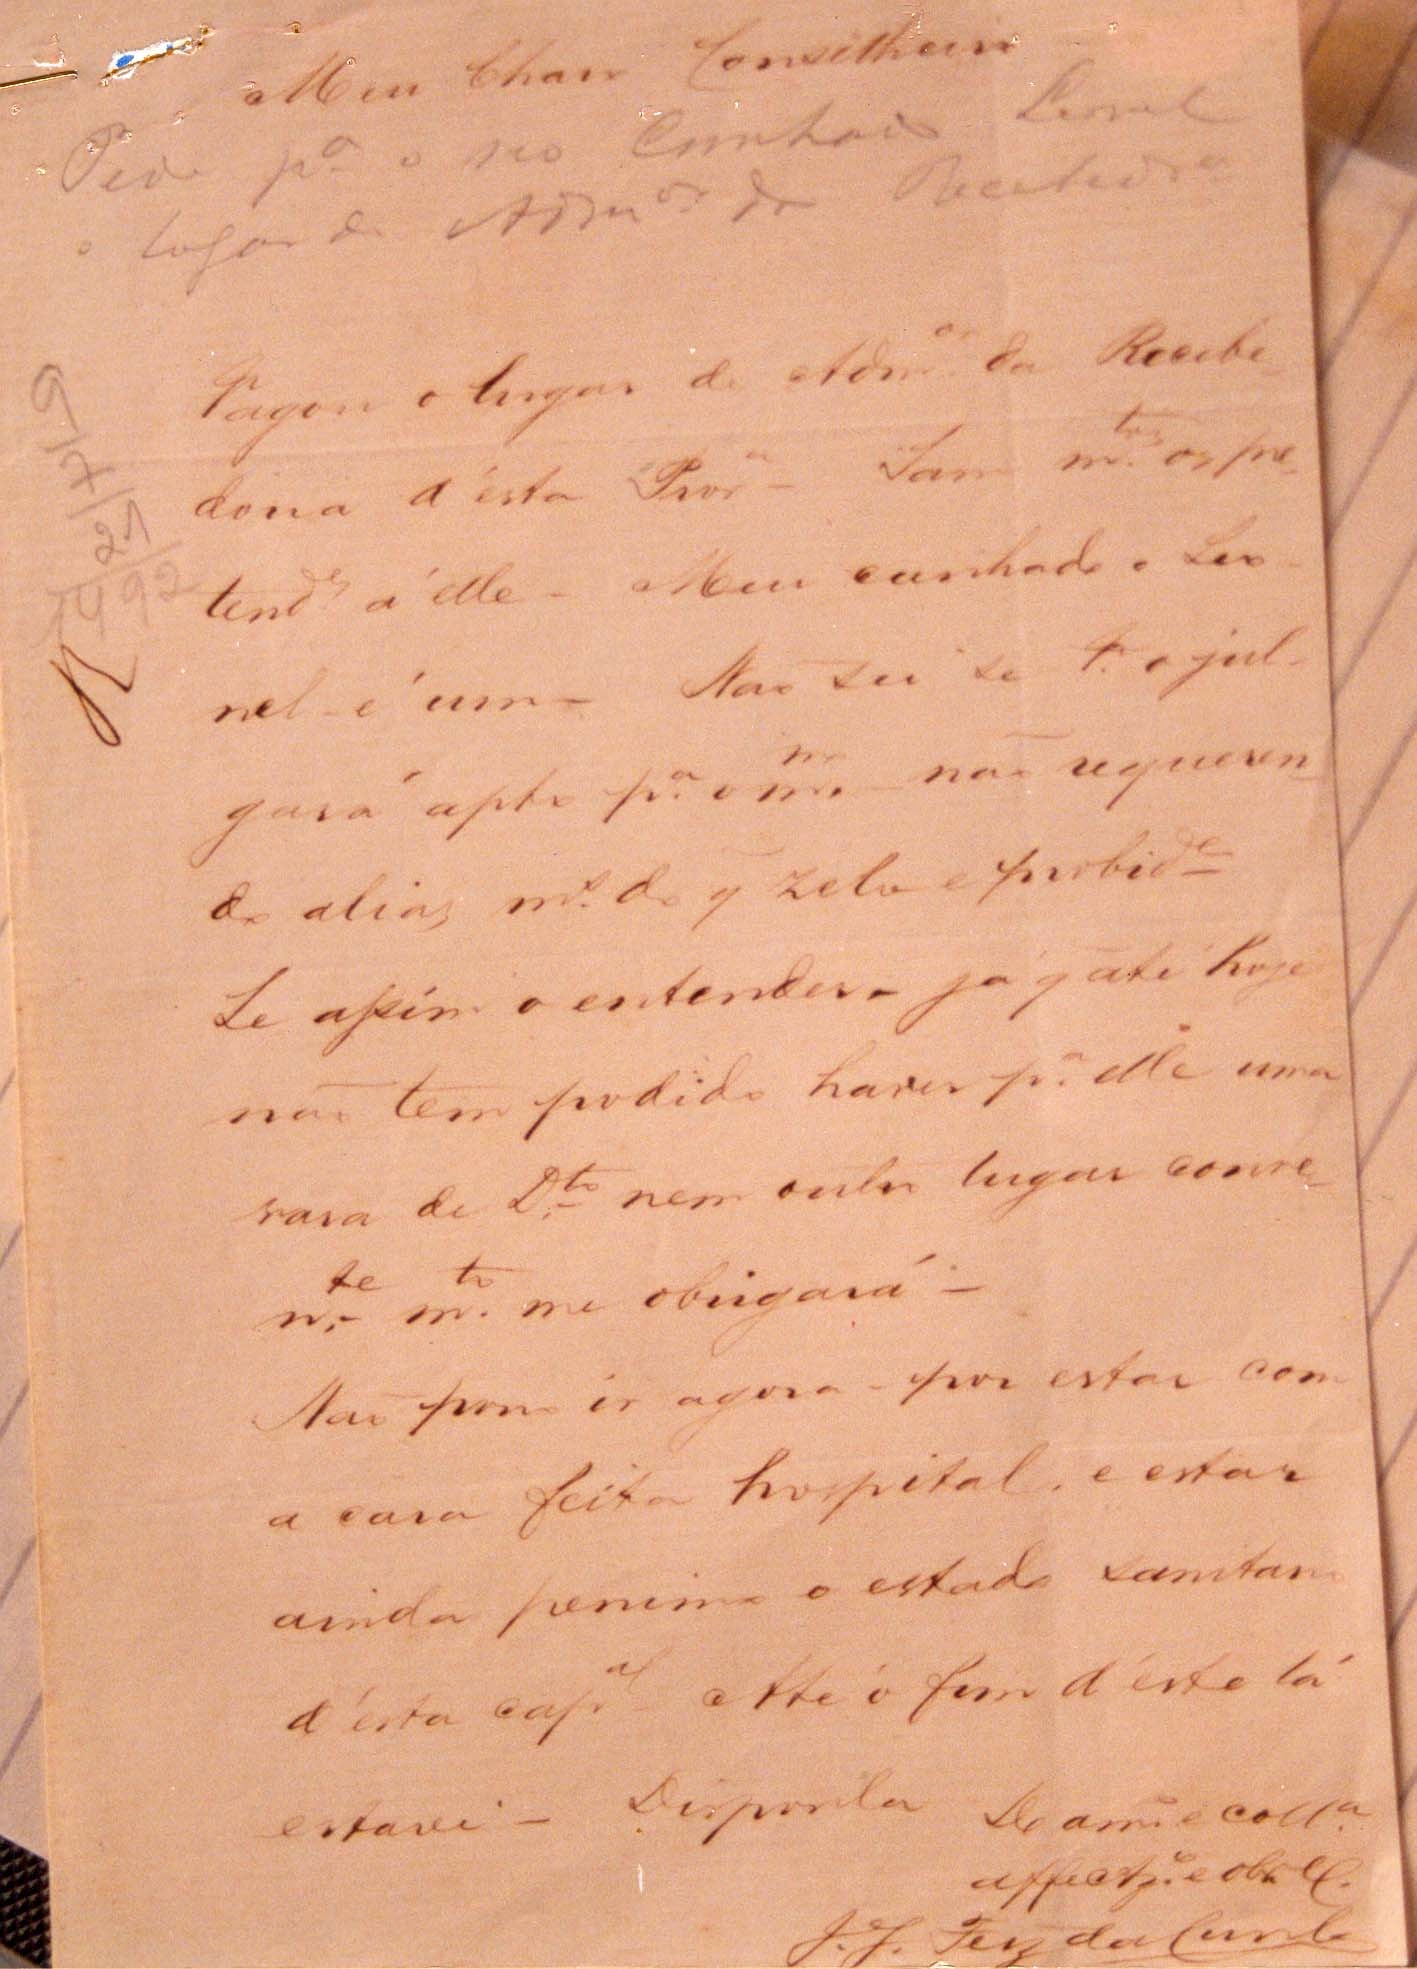 Meu Charo Conselheiro
Pede pª o seo Cunhado Leonel
o logar de Admor da Recebedrª
Vagou o lugar de Admor da Recebe-
doria d'esta Provª - Sam mtos os pre-
tendes á elle - Meu cunhado o Leo-
nel - é um - Não sei se V. o jul-
gará apto pª o mmo - não requeren-
do alias ms. do q zelo e probide
Se assim o entender - já q até hoje
não tem podido haver pª elle uma
vara de Dto nem outro lugar conve-
nte mto me obrigará -
Não posso ir agora - por estar com
a casa feita hospital, e estar
ainda pessimo o estado sanitario
d'esta capal Até o fim d'este lá
estarei - Disponha
Do amo e collª
affecto e obr
J. J. Fez da Cunha
9/7/21
492